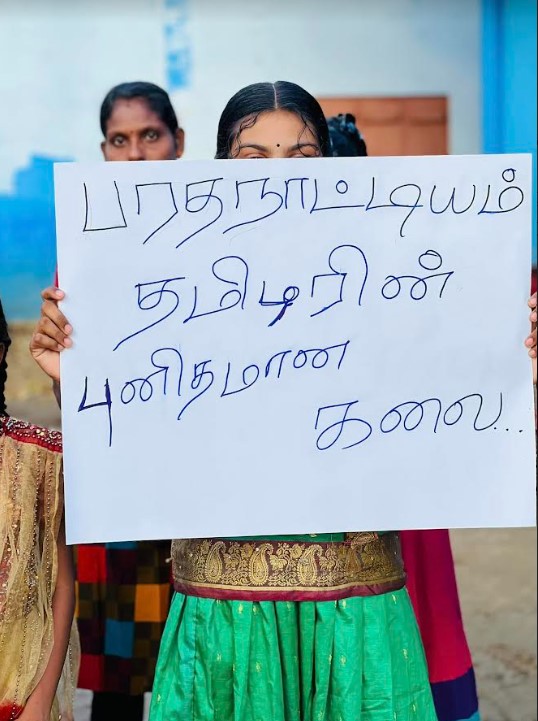 பரதநாட்டியம்
தமிழரின்
புனிதமான
கலை...